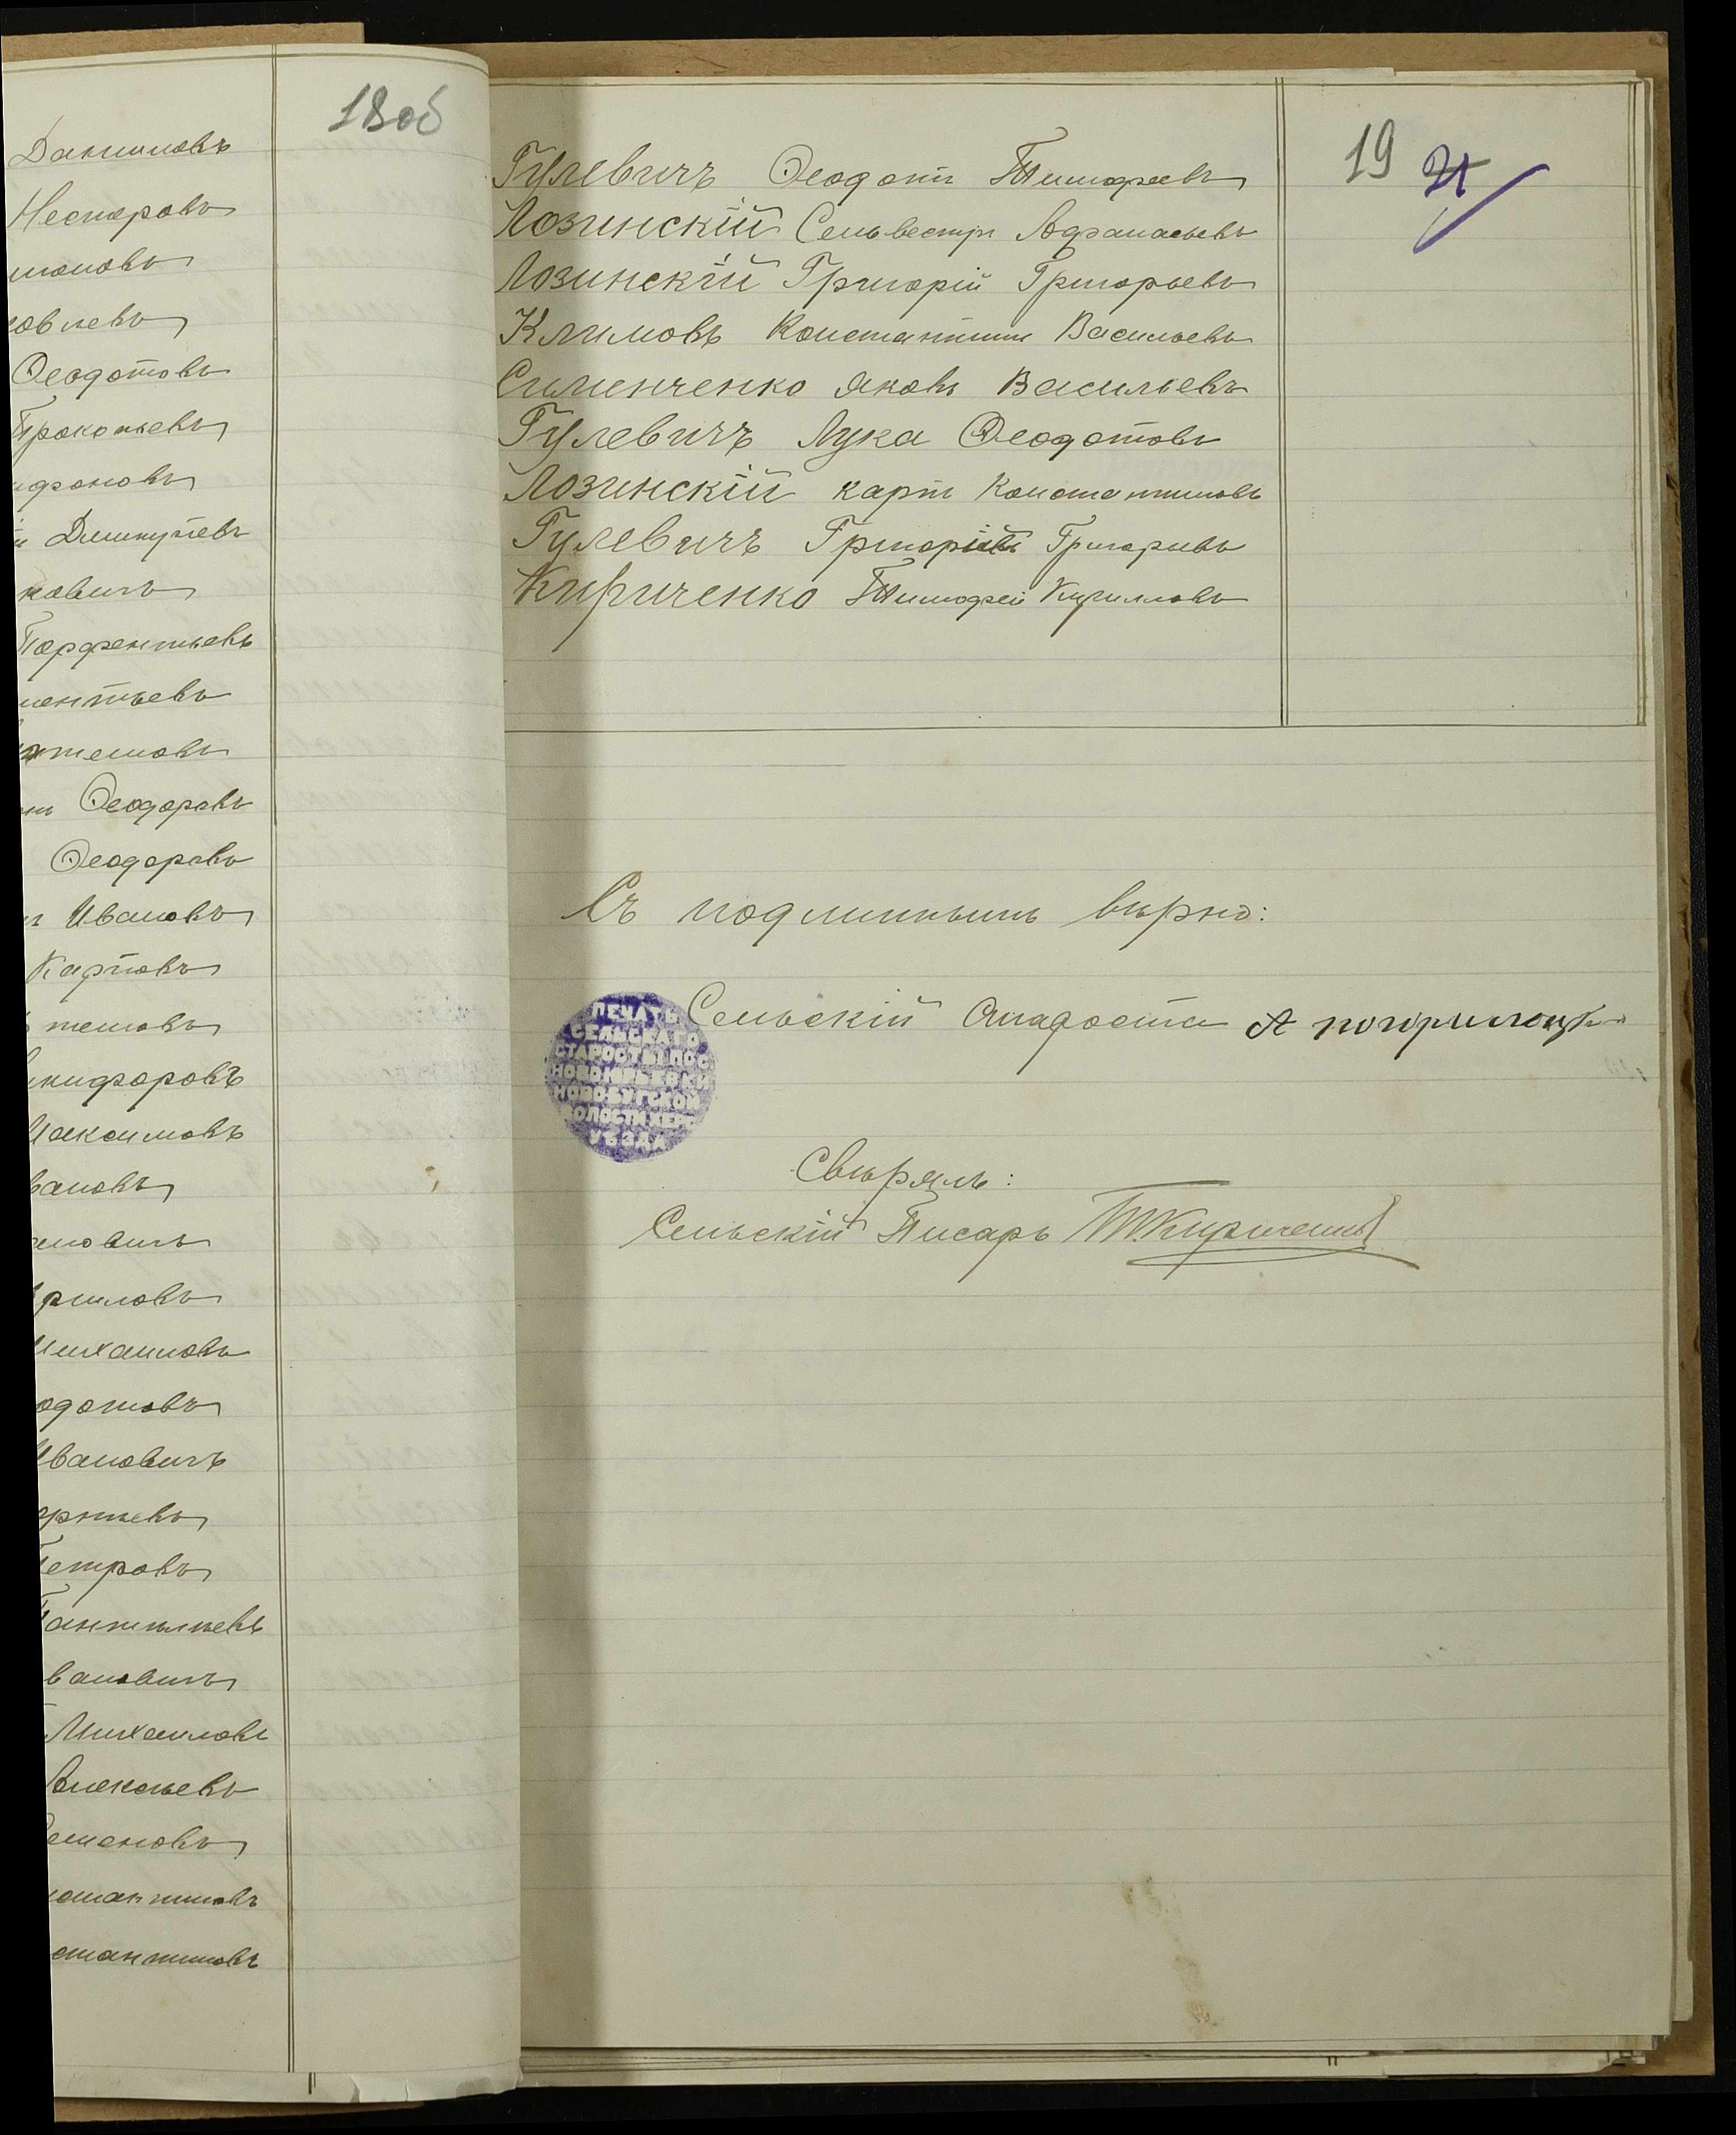 18об
Даниловъ
Несторовъ
Ѳеодотовъ
Прокопьевъ
Парфентьевъ
Ѳеодоровъ
Ѳеодоровъ
Ивановъ
Карповъ
икифоровъ
Максимовъ
вановъ
Михаиловъ
одотовъ
Ивановичъ
Петровъ
вановичъ
Михаиловъ
Алексѣевъ
Семеновъ
стантиновъ
стантиновъ
19 21
Гулевичъ Ѳеодотъ Тимофеевъ
Лозинскій Сельвестръ Афанасьевъ
Лозинскій Григорій Григорьевъ
Климовъ Константинъ Васильевъ
Сименченко Яковъ Васильевъ
Гулевичъ Лука Ѳеодотовъ
Лозинскій Карпъ Константиновъ
Гулевичъ Григорій Григорьевъ
Кириченко Тимофей Кирилловъ
Съ подлиннымъ вѣрно:
Сельскій Староста А
ПЕЧАТЬ
СЕЛЬСКАГО
СТАРОСТЫ ПОС.
НОВОЮРЬЕВКИ
НОВОБУГСКОЙ
ВОЛОСТИ ХЕРС.
УѢЗДА
Свѣрялъ:
Сельскій Писарь Т Кириченко